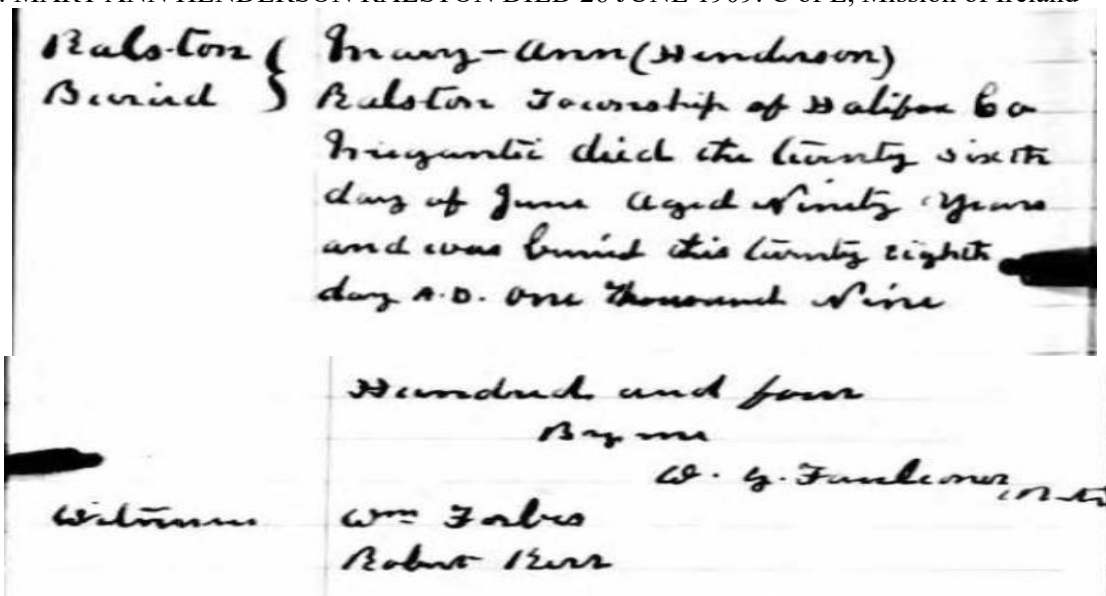 . MARY ANN HENDERSON RALSTON DIED 26 JUNE 1909. C of E, Mission of Ireland
Ralston { Mary-Ann (Henderson)
Buried } Ralston Township of Halifax Co
Megantic died the twenty sixth
day of June Aged Ninety Years
and was buried this twenty eighth
day A.D. One Thousand Nine
Hundred and four
By me
W. G. Faulconer,
Witnesses Wm Forbes
Robert Kerr